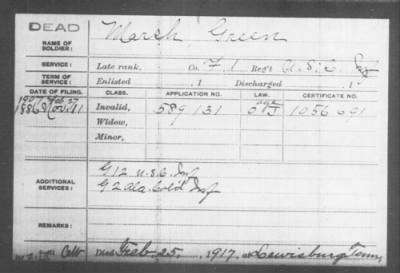 DEAD
NAME OF SOLDIER: Marsh Green
SERVICE: Late rank, Co. F. 1 Reg't U.S.C. Inf
TERM OF SERVICE: Enlisted , 1 Discharged , 1
DATE OF FILING. CLASS. APPLICATION NO. LAW. CERTIFICATE NO.
1907 Feb 27 age
1886 Nov. 11 Invalid, 589 131 O & J 1056 691
Widow,
Minor,
ADDITIONAL SERVICES:
G 12 U.S.C. Inf
G 2 Ala. Col'd Inf
REMARKS:
Died Feb 25, 1917, at Lewisburg Tenn